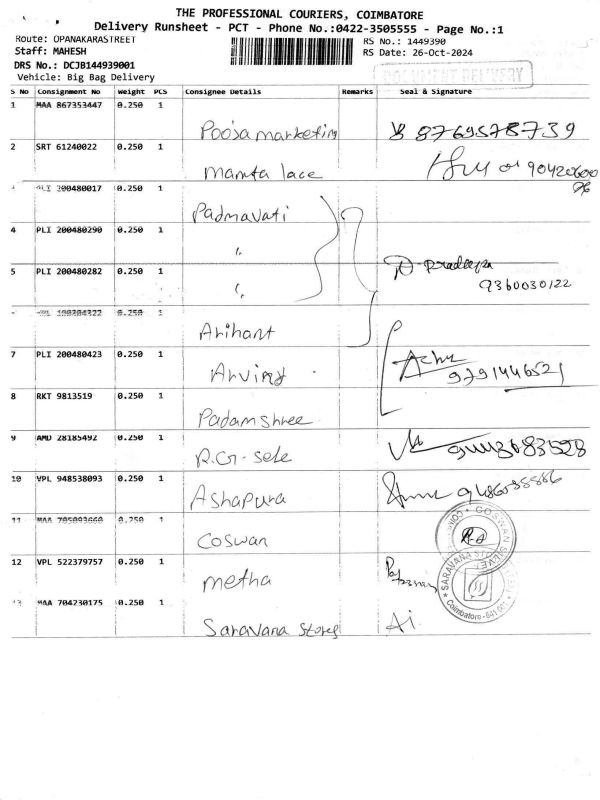 THE PROFESSIONAL COURIERS, COIMBATORE
Delivery Runsheet - PCT - Phone No.:0422-3505555 - Page No.:1
Route: OPANAKARASTREET
RS No.: 1449390
Staff: MAHESH
RS Date: 26-Oct-2024
DRS No.: DCJB144939001
Vehicle: Big Bag Delivery
DOCUMENT DELIVERY
S No Consignment No Weight PCS Consignee Details Remarks Seal & Signature
1 MAA 867353447 0.250 1
Pooja marketing 8769578739
2 SRT 61240022 0.250 1
Mamta lace
PLI 200480017 0.250 1
Padmavati
4 PLI 200480290 0.250 1
"
5 PLI 200480282 0.250 1
" Pradeepa
9360030122
0.250 1
Arihant
7 PLI 200480423 0.250 1
Arvind 9791446521
8 RKT 9813519 0.250 1
Padamshree
9 AMD 28185492 0.250 1
R.G-Sele
10 VPL 948538093 0.250 1
Ashapura
11 MAA 0.250 1
Coswan
12 VPL 522379757 0.250 1
metha
13 MAA 704230175 0.250 1
Saravana Stores Ai
GOSWAN SILVER
SARAVANA STORES
Coimbatore - 641 001